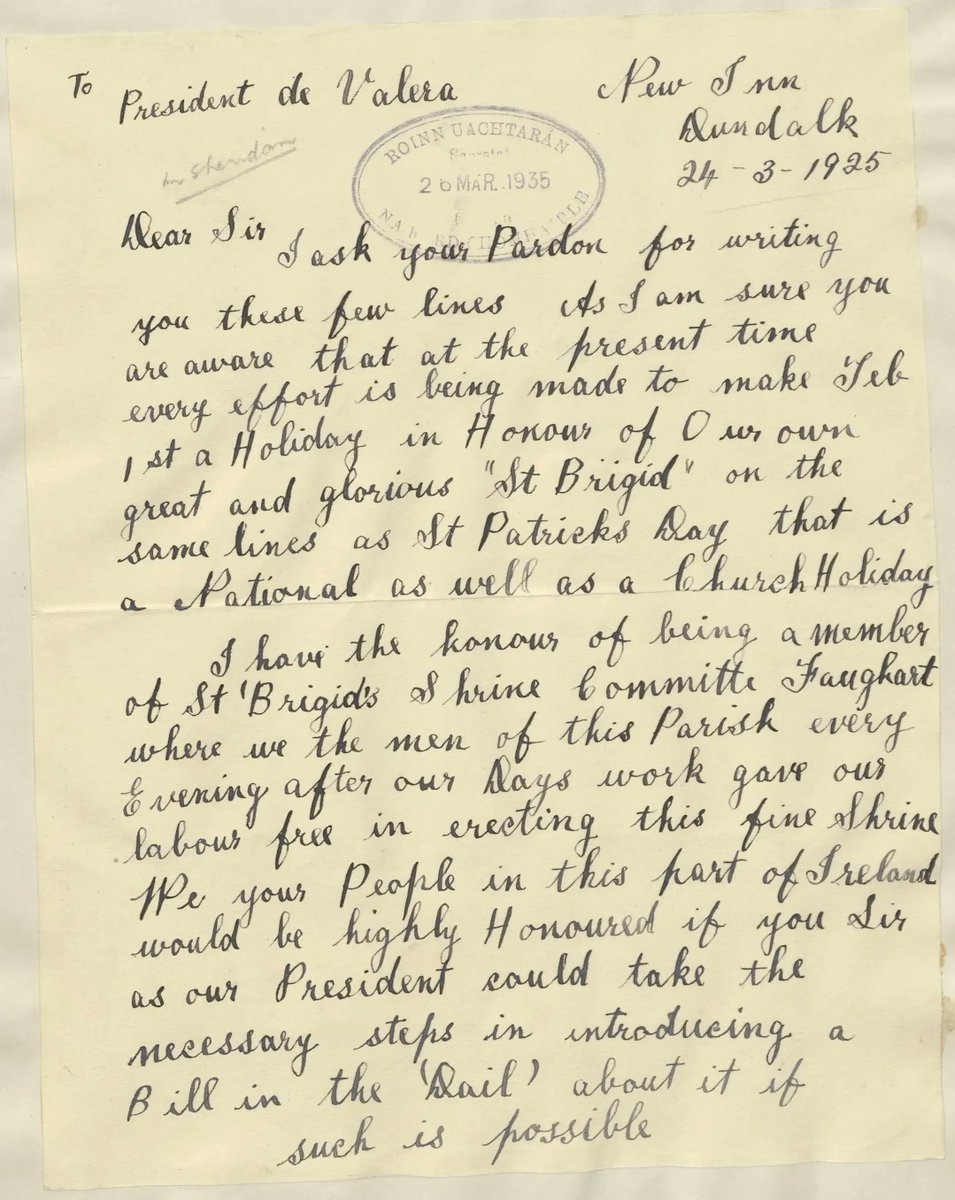 To President de Valera
New Inn
Dundalk
24-3-1925
Mr Sheridan
ROINN UACHTARÁN
26 MAR. 1935
Dear Sir
I ask your Pardon for writing
you these few lines As I am sure you
are aware that at the present time
every effort is being made to make Feb
1st a Holiday in Honour of Our own
great and glorious "St Brigid" on the
same lines as St Patricks Day that is
a National as well as a Church Holiday
I have the honour of being a member
of St 'Brigid's Shrine Committe Faughart
where we the men of this Parish every
Evening after our Days work gave our
labour free in erecting this fine Shrine
We your People in this part of Ireland
would be highly Honoured if you Sir
as our President could take the
necessary steps in introducing a
Bill in the 'Dail' about it if
such is possible